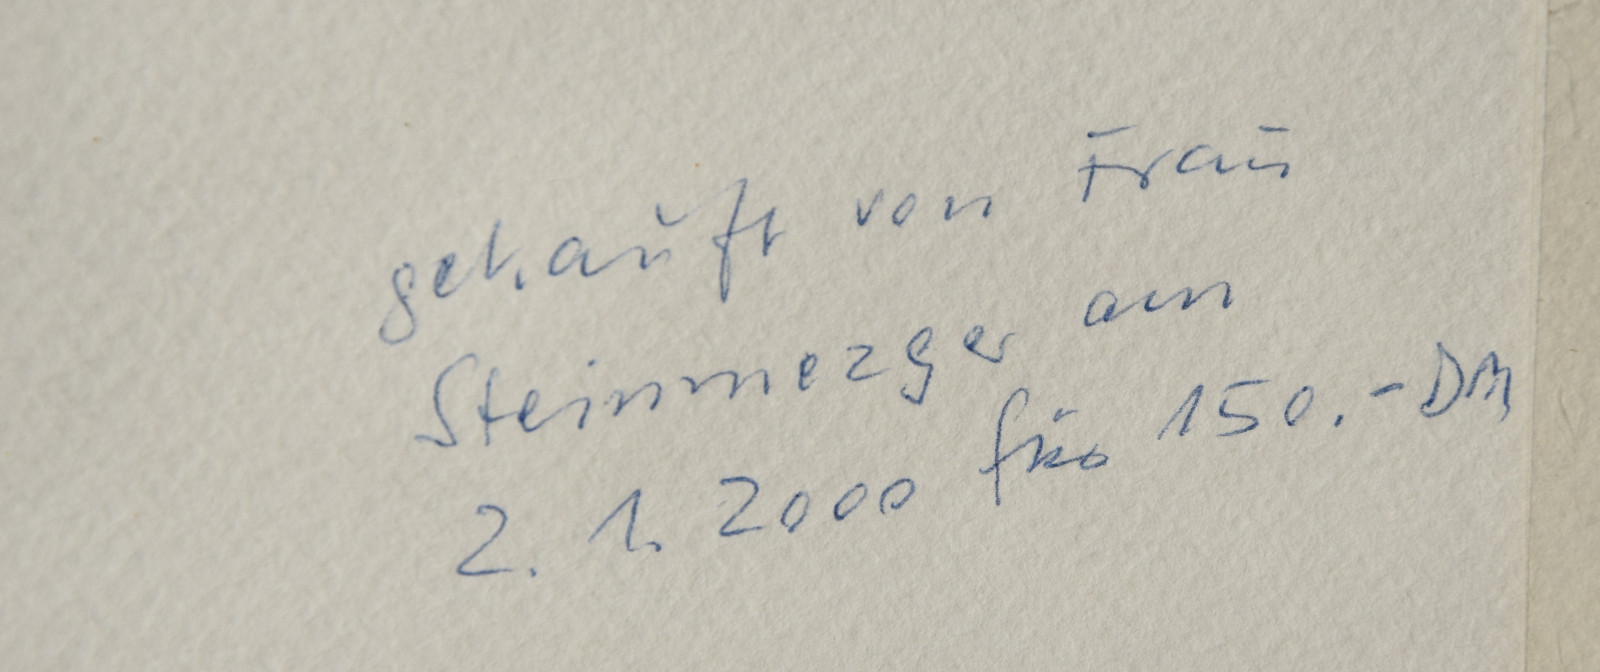 gekauft von Frau
Steinmezger am
2. 1. 2000 für 150.- DM